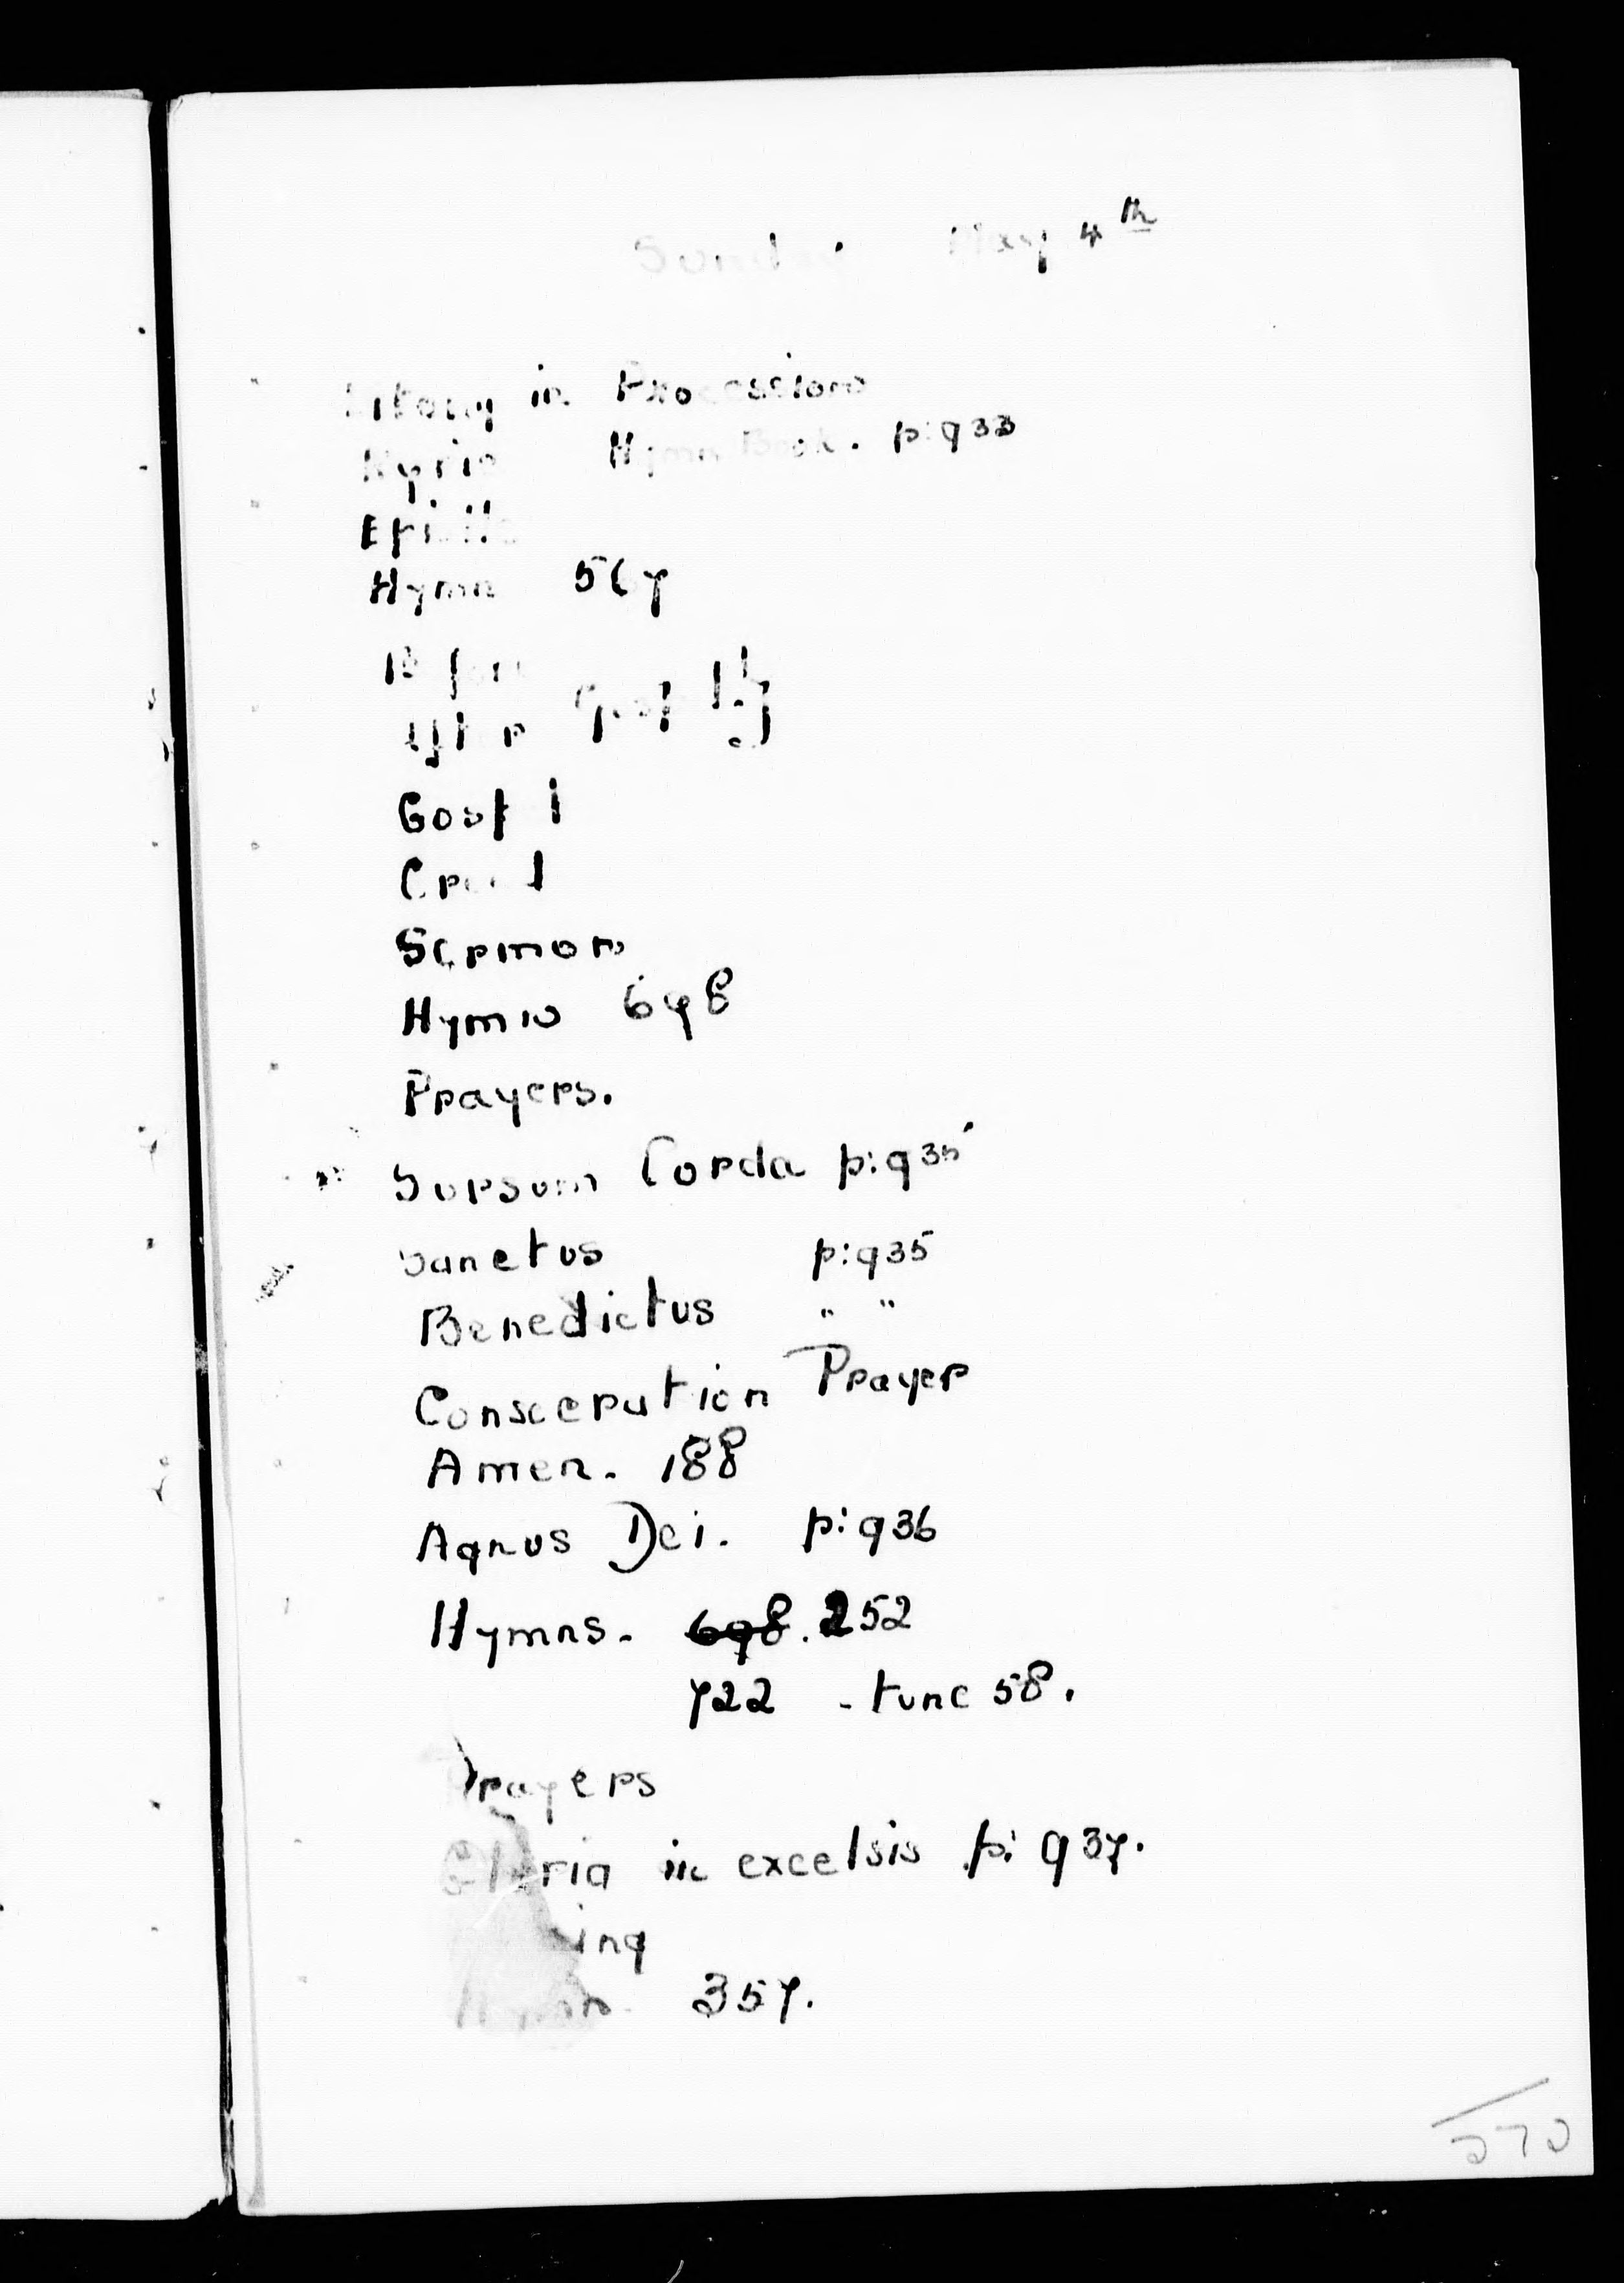 Sunday May 4th
Litany in Procession
Kyrie Hymn Book. p:933
Epistle
Hymn 567
Before
After Gospel
Gospel
Creed
Sermon
Hymn 698
Prayers.
Sursum Corda p:935
Sanctus p:935
Benedictus " "
Consecration Prayer
Amen. 188
Agnus Dei. p:936
Hymns. 698. 252
722 - tune 58.
Prayers
Gloria in excelsis p: 937.
Hymn 357.